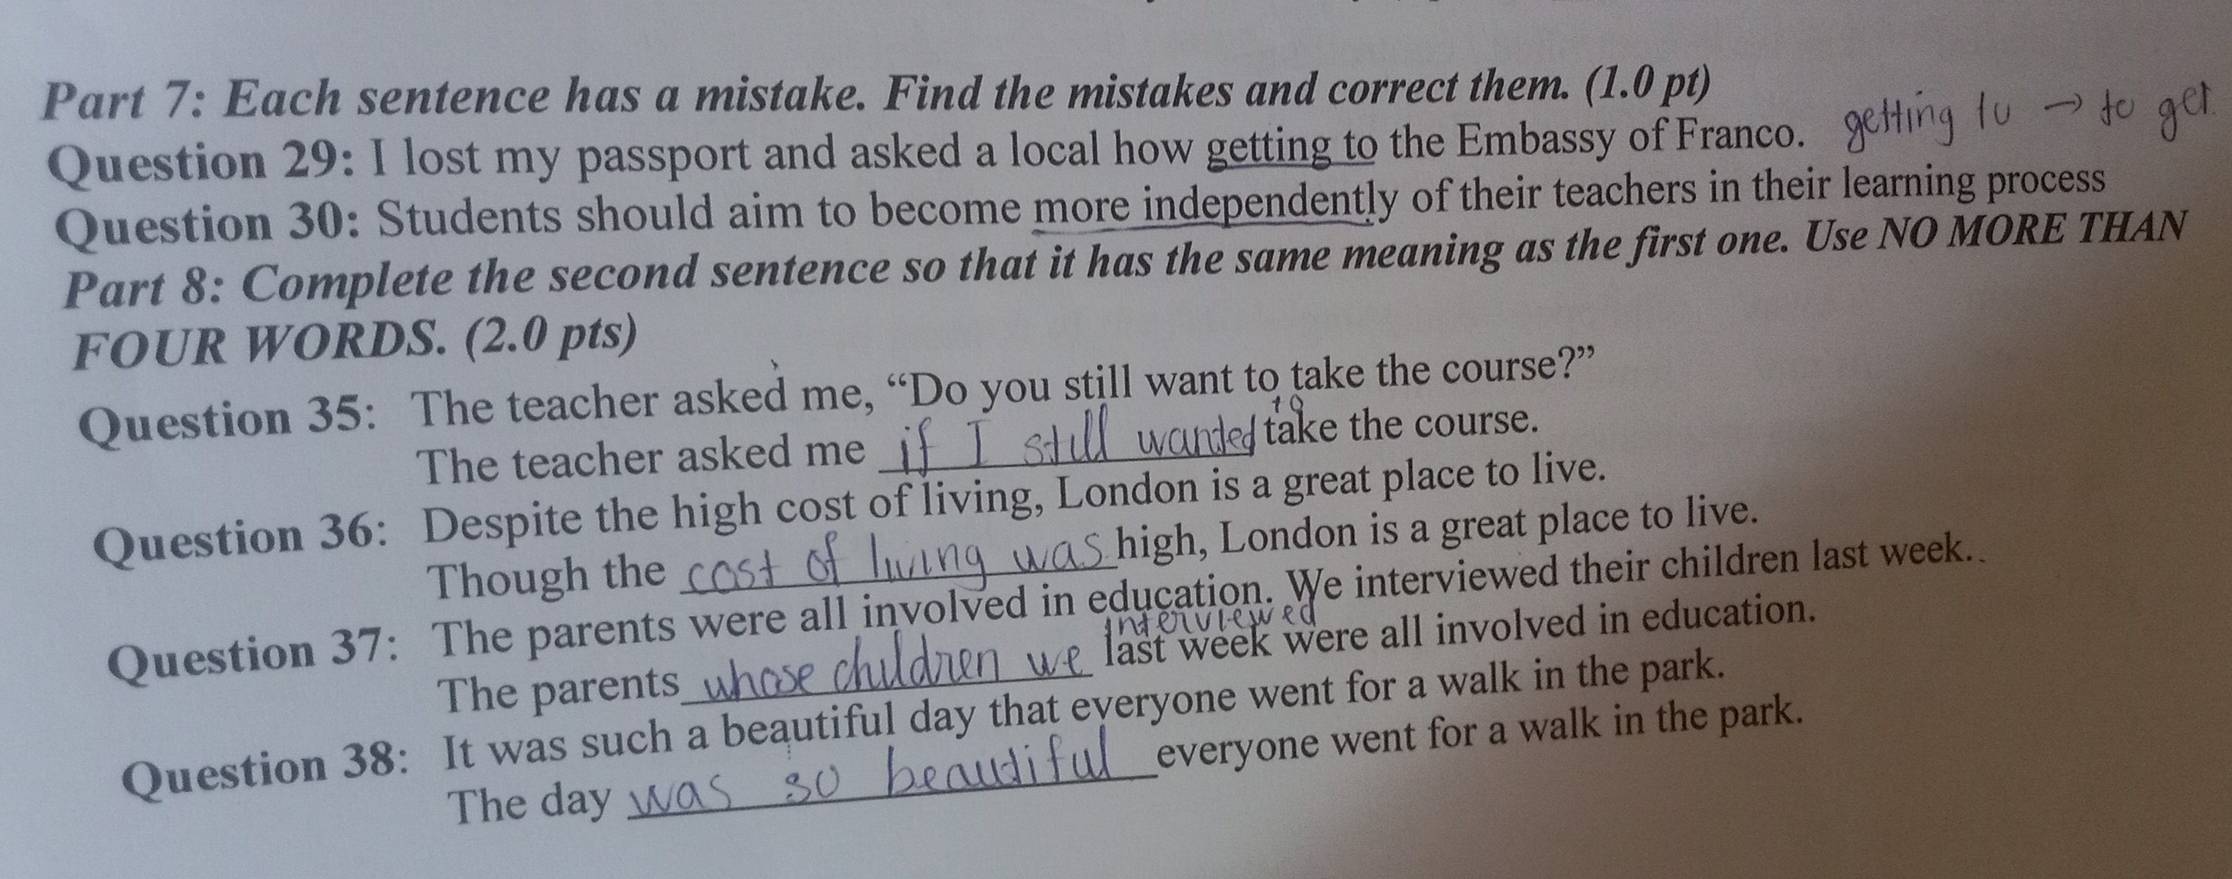 Part 7: Each sentence has a mistake. Find the mistakes and correct them. (1.0 pt)
Question 29: I lost my passport and asked a local how getting to the Embassy of Franco. getting to → to get
Question 30: Students should aim to become more independently of their teachers in their learning process
Part 8: Complete the second sentence so that it has the same meaning as the first one. Use NO MORE THAN
FOUR WORDS. (2.0 pts)
Question 35: The teacher asked me, “Do you still want to take the course?”
The teacher asked me if I still wanted to take the course.
Question 36: Despite the high cost of living, London is a great place to live.
Though the cost of living was high, London is a great place to live.
Question 37: The parents were all involved in education. We interviewed their children last week.
The parents whose children we interviewed last week were all involved in education.
Question 38: It was such a beautiful day that everyone went for a walk in the park.
The day was so beautiful everyone went for a walk in the park.